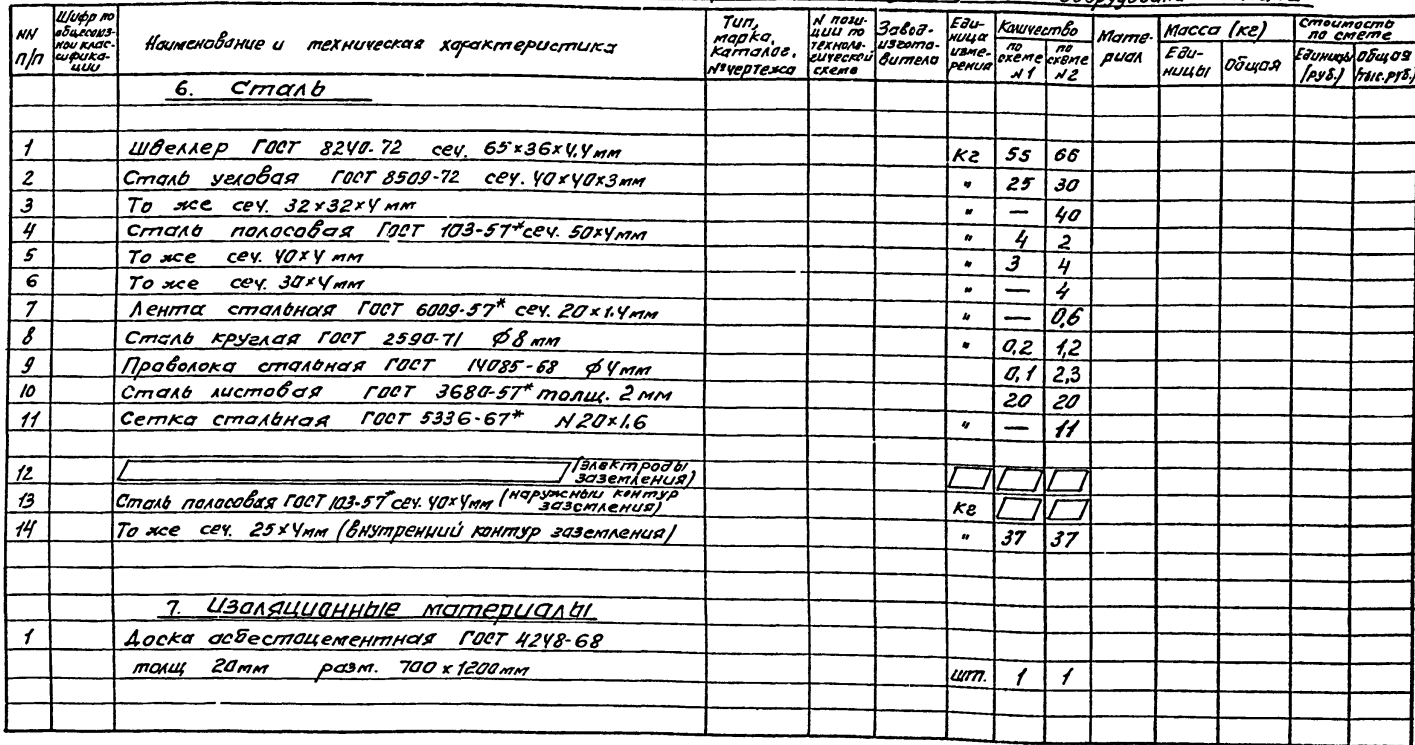 NN п/п | Шифр по общесоюзной классификации | Наименование и техническая характеристика | Тип, марка, каталог, № чертежа | N позиции по технологической схеме | Завод-изготовитель | Единица измерения | Количество по схеме N1 | по схеме N2 | Материал | Масса (кг) Единицы | Общая | Стоимость по смете Единицы (руб.) | Общая (тыс.руб.)
6. Сталь
1 Швеллер ГОСТ 8240-72 сеч. 65×36×4,4 мм кг 55 66
2 Сталь угловая ГОСТ 8509-72 сеч. 40×40×3 мм " 25 30
3 То же сеч. 32×32×4 мм " — 40
4 Сталь полосовая ГОСТ 103-57* сеч. 50×4 мм " 4 2
5 То же сеч. 40×4 мм " 3 4
6 То же сеч. 30×4 мм " — 4
7 Лента стальная ГОСТ 6009-57* сеч. 20×1.4 мм " — 0,6
8 Сталь круглая ГОСТ 2590-71 ϕ8 мм " 0,2 1,2
9 Проволока стальная ГОСТ 14085-68 ϕ4 мм 0,1 2,3
10 Сталь листовая ГОСТ 3680-57* толщ. 2 мм 20 20
11 Сетка стальная ГОСТ 5336-67* N 20×1.6 " — 11
12 (электроды заземления)
13 Сталь полосовая ГОСТ 103-57* сеч. 40×4 мм (наружный контур заземления) кг
14 То же сеч. 25×4 мм (внутренний контур заземления) " 37 37
7. Изоляционные материалы
1 Доска асбестоцементная ГОСТ 4248-68
толщ 20 мм разм. 700 x 1200 мм шт. 1 1